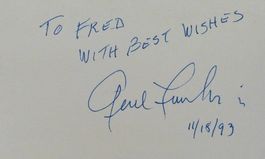 TO FRED
WITH BEST WISHES
11/18/93